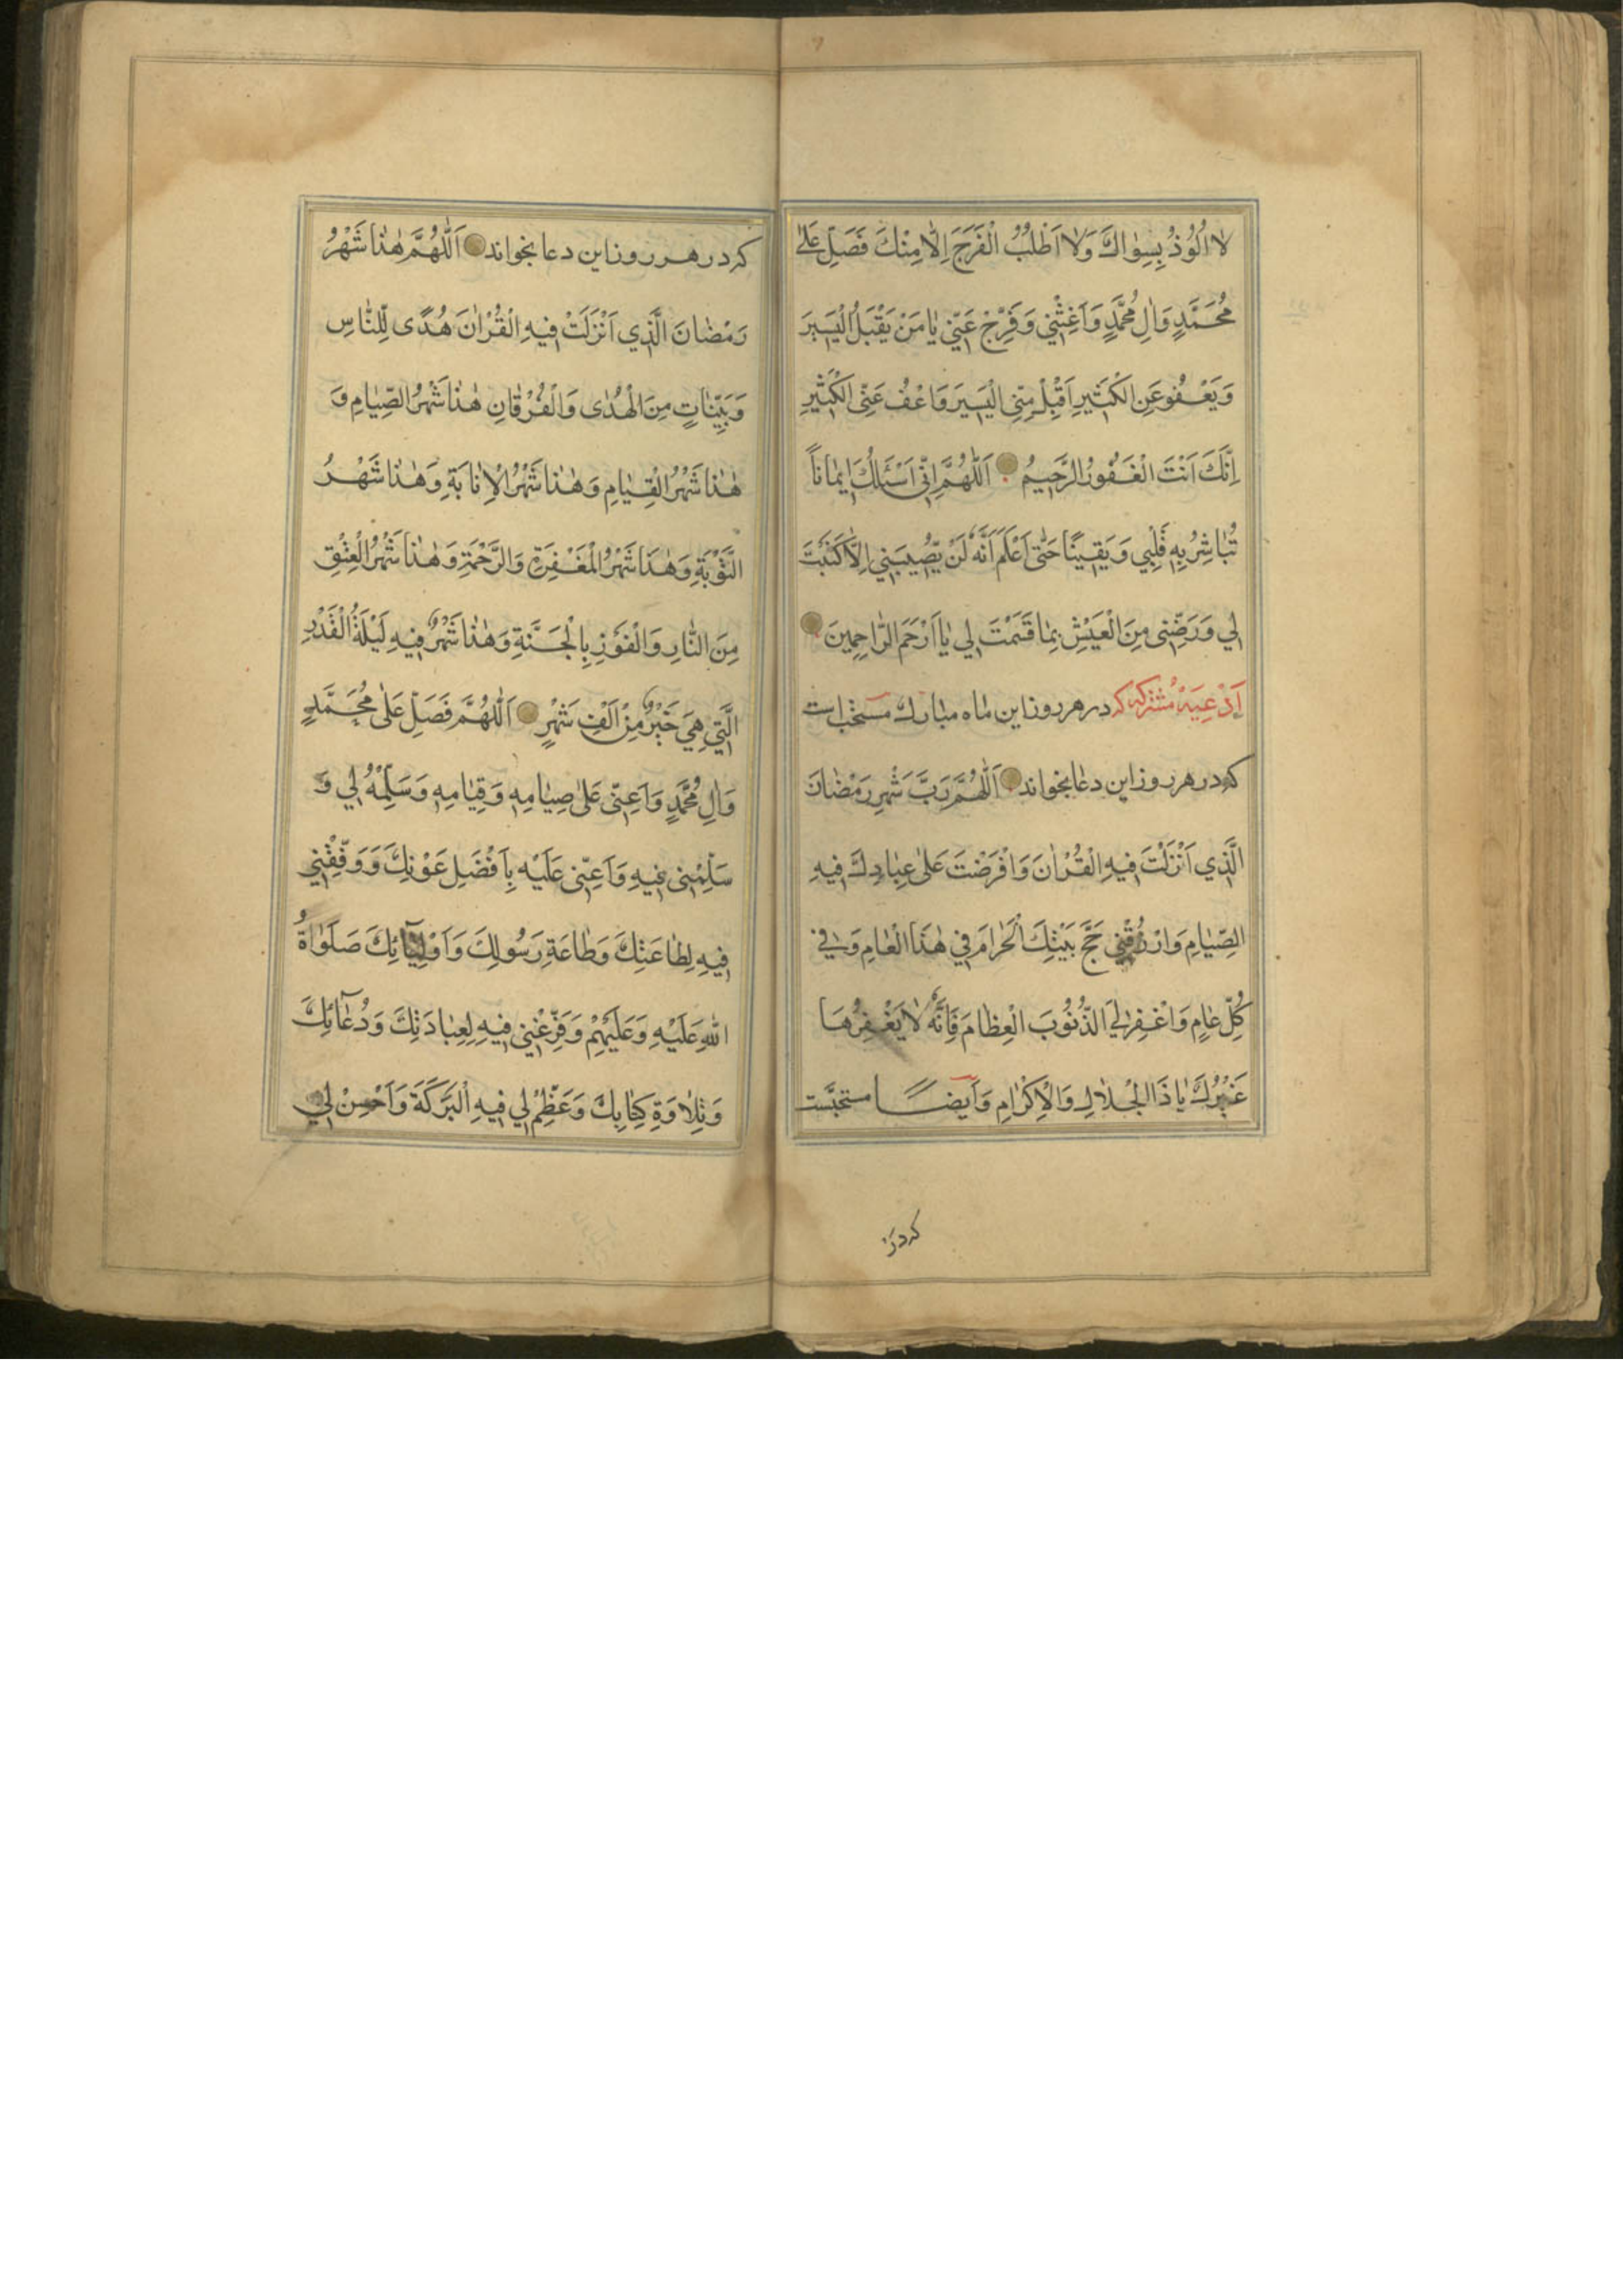 لٰا اَلُوذُ بِسِوٰاكَ وَلٰا اَطْلُبُ الْفَرَجَ اِلّٰا مِنْكَ فَصَلِّ عَلٰى
مُحَمَّدٍ وَاٰلِ مُحَمَّدٍ وَاَغِثْنِي وَفَرِّجْ عَنِّي يٰا مَنْ يَقْبَلُ الْيَسِيرَ
وَيَعْفُو عَنِ الْكَثِيرِ اِقْبَلْ مِنِّي الْيَسِيرَ وَاعْفُ عَنِّي الْكَثِيرَ
اِنَّكَ اَنْتَ الْغَفُورُ الرَّحِيمُ اَللّٰهُمَّ اِنِّي اَسْئَلُكَ اِيمٰاناً
تُبٰاشِرُ بِهِ قَلْبِي وَيَقِينًا حَتّٰى اَعْلَمَ اَنَّهُ لَنْ يُصِيبَنِي اِلَّا كَتَبْتَ
لِي وَرَضِّنِي مِنَ الْعَيْشِ بِمٰا قَسَمْتَ لِي يٰا اَرْحَمَ الرّٰاحِمِينَ
اَدْعِيَهٔ مُشْتَرَكِه كه در هر روز اين ماه مبارك مستحب است
كه در هر روز اين دعا بخواند اَللّٰهُمَّ رَبَّ شَهْرِ رَمْضٰانَ
الَّذِي اَنْزَلْتَ فِيهِ الْقُرْاٰنَ وَافْرَضْتَ عَلٰى عِبٰادِكَ فِيهِ
الصِّيٰامِ وَارْزُقْنِي حَجَّ بَيْتِكَ الْحَرٰامَ فِي هٰذَا الْعٰامِ وَفِي
كُلِّ عٰامٍ وَاغْفِرْ لِيَ الذُّنُوبَ الْعِظٰامَ فَاِنَّهُ لٰا يَغْفِرُهٰا
غَيْرُكَ يٰا ذَا الْجَلٰالِ وَالْاِكْرٰامِ وَاَيضًا مستحبّست
كه در
كه در هر روز اين دعا بخواند اَللّٰهُمَّ هٰذٰا شَهْرُ
رَمْضٰانَ الَّذِي اَنْزَلَتْ فِيهِ الْقُرْاٰنَ هُدًى لِلنّٰاسِ
وَبَيِّنٰاتٍ مِنَ الْهُدٰى وَالْفُرْقٰانِ هٰذٰا شَهْرُ الصِّيٰامِ وَ
هٰذٰا شَهْرُ الْقِيٰامِ وَهٰذٰا شَهْرُ الْاِنٰابَةِ وَهٰذٰا شَهْرُ
التَّوْبَةِ وَهٰذَا شَهْرُ الْمَغْفِرَةِ وَالرَّحْمَةِ وَهٰذٰا شَهْرُ الْعِتْقِ
مِنَ النّٰارِ وَالْفَوْزِ بِالْجَنَّةِ وَهٰذٰا شَهْرٌ فِيهِ لَيْلَةُ الْقَدْرِ
الَّتِي هِيَ خَيْرٌ مِنْ اَلْفِ شَهْرٍ اَللّٰهُمَّ فَصَلِّ عَلٰى مُحَمَّدٍ
وَاٰلِ مُحَمَّدٍ وَاَعِنِّي عَلٰى صِيٰامِهِ وَقِيٰامِهِ وَسَلِّمْهُ لِي وَ
سَلِّمْنِي فِيهِ وَاَعِنِّي عَلَيْهِ بِاَفْضَلِ عَوْنِكَ وَوَفِّقْنِي
فِيهِ لِطٰاعَتِكَ وَطٰاعَةِ رَسُولِكَ وَاَوْلِيٰٓائِكَ صَلَوٰاةُ
اللّٰهِ عَلَيْهِ وَعَلَيْهِمْ وَفَرِّغْنِي فِيهِ لِعِبٰادَتِكَ وَدُعٰٓائِكَ
وَتِلٰاوَةِ كِتٰابِكَ وَعَظِّمْ لِي فِيهِ الْبَرَكَةَ وَاَحْسِنْ لِي